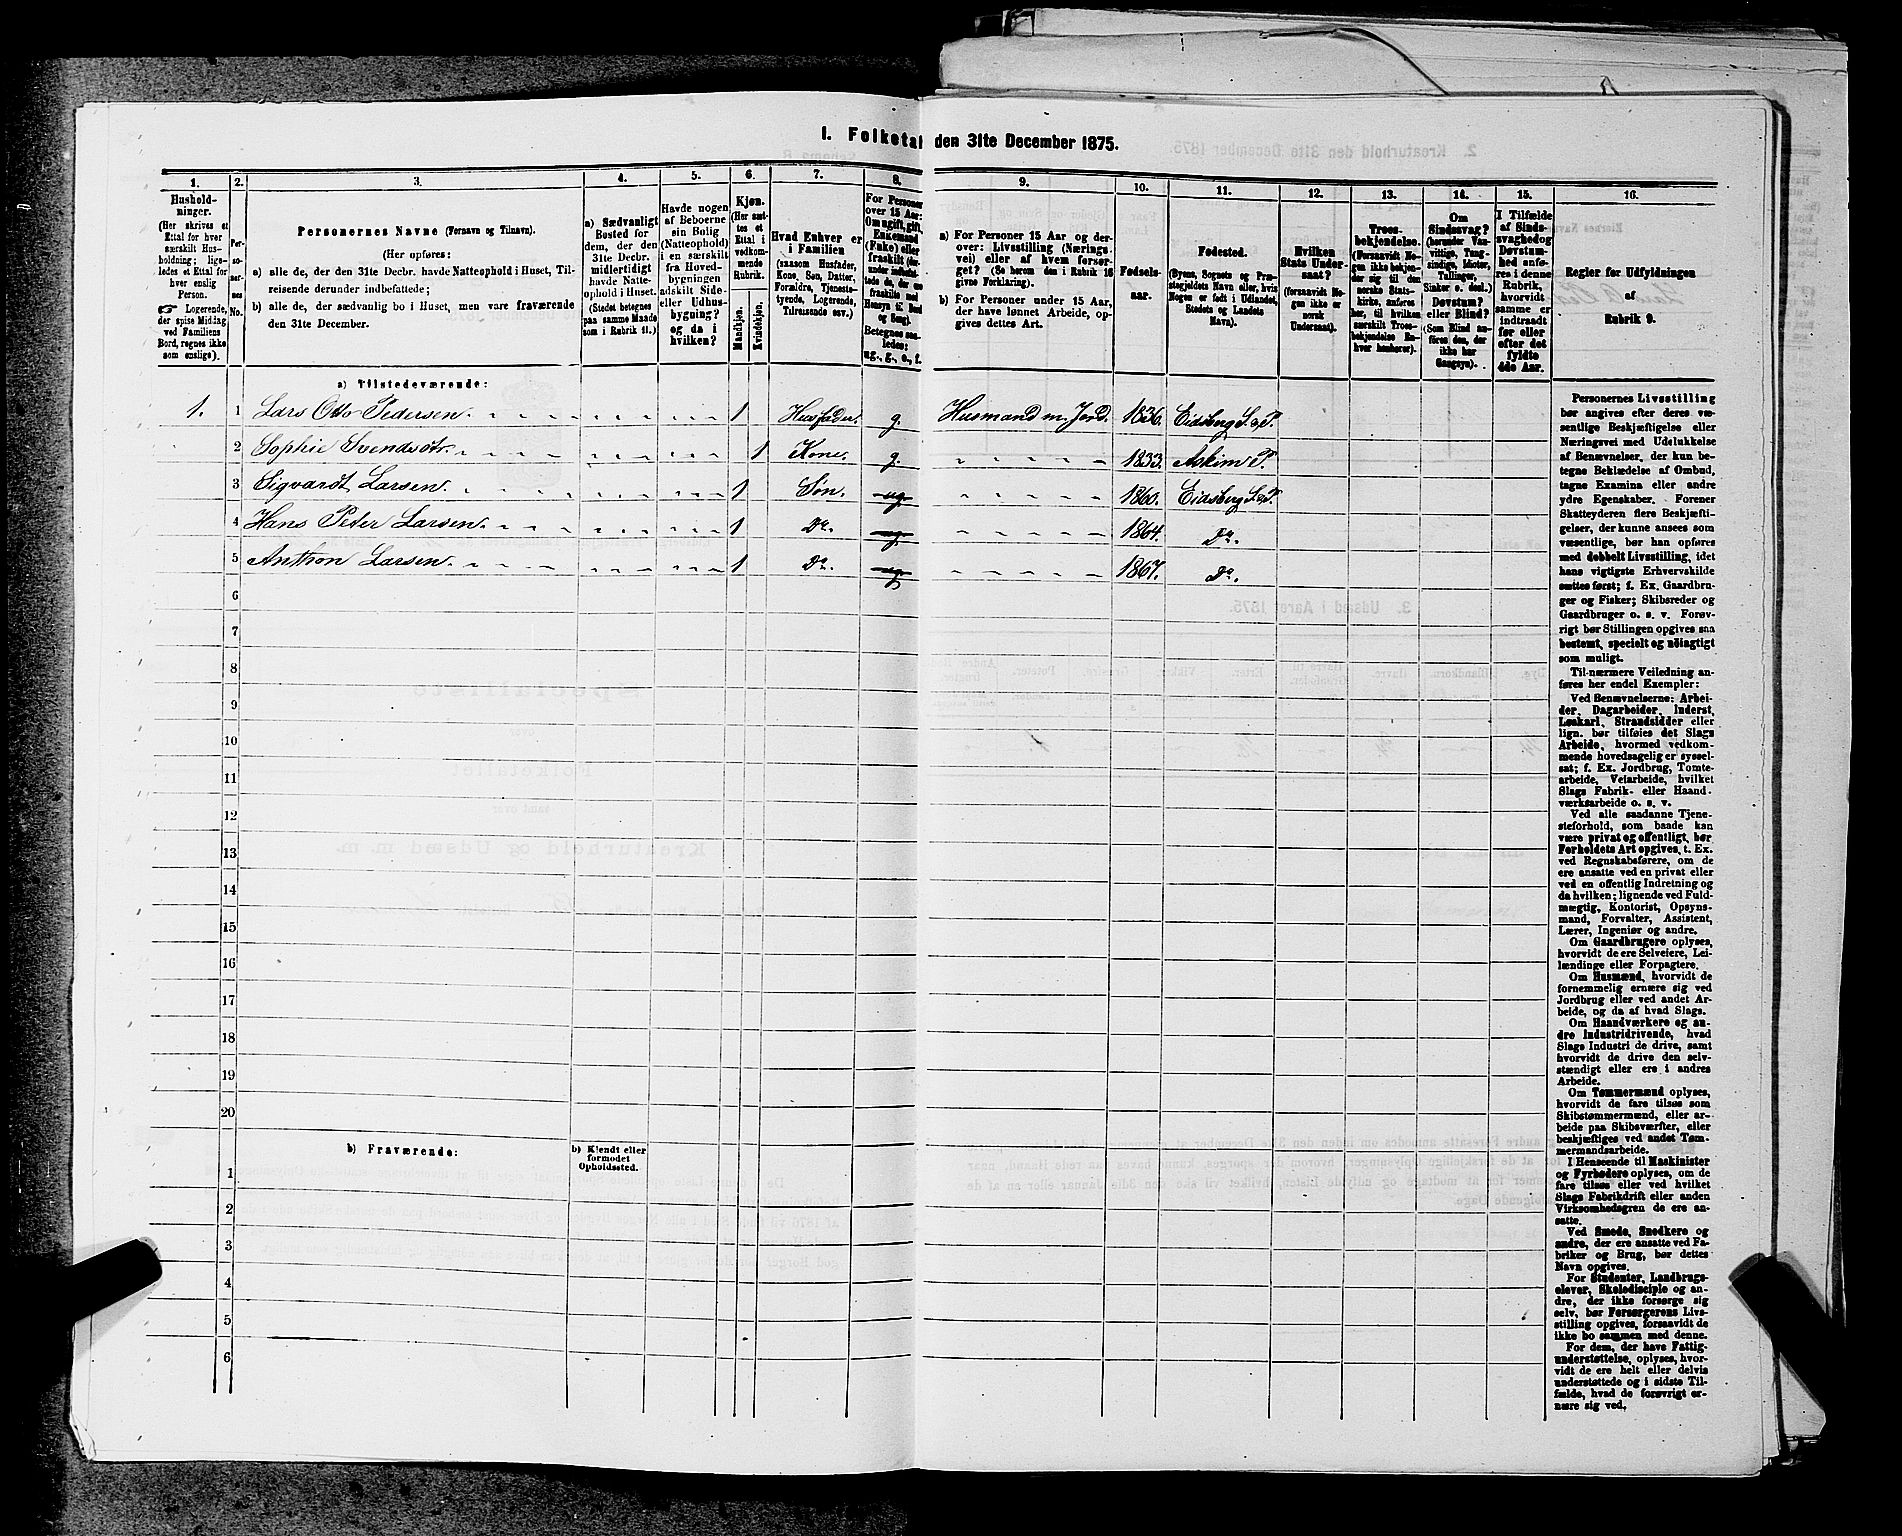 1. Folketal den 31te December 1875.
1. 2. 3. 4. 5. 6. 7. 8. 9. 10. 11. 12. 13. 14. 15. 16.
Husholdninger.
(Her skrives et
Ettal for hver
særskilt Husholdning; ligeledes et Ettal for
hver enslig
Person.
☞ Logerende,
der spise Middag
ved Familiens
Bord, regnes ikke
som enslige).
Personernes No.
Personernes Navne (Fornavn og Tilnavn).
(Her opføres:
a) alle de, der den 31te Decbr. havde Natteophold i Huset, Tilreisende derunder indbefattede;
b) alle de, der sædvanlig bo i Huset, men vare fraværende
den 31te December.
a) Sædvanligt
Bosted for
dem, der den
31te Decbr.
midlertidigt
havde Natteophold i Huset.
(Stedet betegnes
paa samme Maade
som i Rubrik 11.)
Havde nogen
af Beboerne
sin Bolig
(Natteophold)
i en særskilt
fra Hovedbygningen
adskilt Side-
eller Udhusbygning?
og da i
hvilken?
Kjøn.
(Her sættes et
Ettal i
vedkommende
Rubrik.
Mandkjøn.
Kvindekjøn.
Hvad Enhver er
i Familien
(saasom Husfader,
Kone, Søn, Datter,
Forældre, Tjenestetyende, Logerende,
Tilreisende osv.)
For Personer
over 15 Aar:
Om ugift, gift,
Enkemand
(Enke) eller
fraskilt
Betegnes saaledes:
ug., g., e., f.
a) For Personer 15 Aar og derover: Livsstilling (Næringsvei) eller af hvem forsørget? (Se herom den i Rubrik 16
givne Forklaring).
b) For Personer under 15 Aar,
der have lønnet Arbeide, opgives dettes Art.
Fødselsaar.
Fødested.
(Byens, Sognets og Præstegjeldets Navn eller, hvis
Nogen er født i Udlandet,
Stedets og Landets
Navn).
Hvilken
Stats Undersaat?
(forsaavidt Nogen ikke er
norsk
Undersaat).
Troesbekjendelse.
(Forsaavidt Nogen ikke bekjender sig til den
norske Statskirke, anføres
her, til hvilken
særskilt Troesbekjendelse Enhver henhører).
Om
Sindssvag?
(herunder Vanvittige, Tungsindige, Idioter,
Tullinger,
Sinker o. desl.)
Døvstum?
eller Blind?
(Som Blind anføres den, der
ikke har
Gangsyn).
I Tilfælde
af Sindssvaghed og
Døvstumhed anføres i denne
Rubrik,
hvorvidt
samme er
indtraadt
før eller
efter det
fyldte
4de Aar.
Regler for Udfyldningen
af
Rubrik 9.
a) Tilstedeværende:
1. 1 Lars Otto Pedersen 1 Husfader. g. Husmand m. Jord. 1836. Eidsberg S. o P.
2 Sophie Svendsdtr. 1 Kone. g. 1833. Askim P.
3 Sigvardt Larsen. 1 Søn. ug. 1860. Eidsberg S. o P.
4 Hans Peter Larsen. 1 Do. ug. 1864. Do.
5 Anthon Larsen. 1 Do. ug. 1867. Do.
6
7
8
9
10
11
12
13
14
15
16
17
18
19
20
b) Fraværende:
b) Kjendt eller
formodet
Opholdssted.
1
2
3
4
5
6
Personernes Livsstilling
bør angives efter deres væsentlige Beskjæftigelse eller
Næringsvei med Udelukkelse
af Benævnelser, der kun betegne Beklædelse af Ombud,
tagne Examina eller andre
ydre Egenskaber. Forener
Skatteyderen flere Beskjæftigelser, der kunne ansees som
væsentlige, bør han opføres
med dobbelt Livsstilling, idet
hans vigtigste Erhvervskilde
sættes først; f. Ex. Gaardbruger og Fisker; Skibsreder og
Gaardbruger o. s. v. Forøvrigt bør Stillingen opgives saa
bestemt, specielt og nøiagtigt
som muligt.
Til nærmere Veiledning anføres her endel Exempler:
Ved Benævnelserne: Arbeider, Dagarbeider, Inderst,
Løskarl, Strandsidder eller
lign. bør tilføies det Slags
Arbeide, hvormed vedkommende hovedsagelig er sysselsat; f. Ex. Jordbrug, Tomtearbeide, Veiarbeide, hvilket
Slags Fabrik- eller Haandværksarbeide o. s. v.
Ved alle saadanne Tjenesteforhold, som baade kan
være privat og offentligt, bør
Forholdets Art opgives, t. Ex.
ved Regnskabsførere, om de
ere ansatte ved en privat eller
ved en offentlig Indretning og
da hvilken; lignende ved Fuldmægtig, Kontorist, Opsynsmand, Forvalter, Assistent,
Lærer, Ingeniør og andre.
Om Gaardbrugere oplyses,
hvorvidt de ere Selveiere, Leilændinge eller Forpagtere.
Om Husmænd, hvorvidt de
fornemmelig ernære sig ved
Jordbrug eller ved andet Arbeide, og da af hvad Slags.
Om Haandværkere og andre Industridrivende, hvad
Slags Industri de drive, samt
hvorvidt de drive den selvstændigt eller ere i andres
Arbeide.
Om Tømmermænd oplyses,
hvorvidt de fare tilsøs som
Skibstømmermænd, eller arbeide paa Skibsværfter, eller
beskjæftiges ved andet Tømmermandsarbeide.
I Henseende til Maskinister
og Fyrbødere oplyses, om de
fare tilsøs eller ved hvilket
Slags Fabrikdrift eller anden
Virksomhedsgren de ere ansatte.
Ved Smede, Snedkere og
andre, der ere ansatte ved Fabriker og Brug, bør dettes
Navn opgives.
For Studenter, Landbrugselever, Skoledisciple og andre, der ikke forsørge sig
selv, bør Forsørgerens Livsstilling opgives, forsaavidt de
ikke bo sammen med denne.
For dem, der have Fattigunderstøttelse, oplyses, hvorvidt de ere helt eller delvis
understøttede og i sidste Tilfælde, hvad de forøvrigt ernære sig ved.